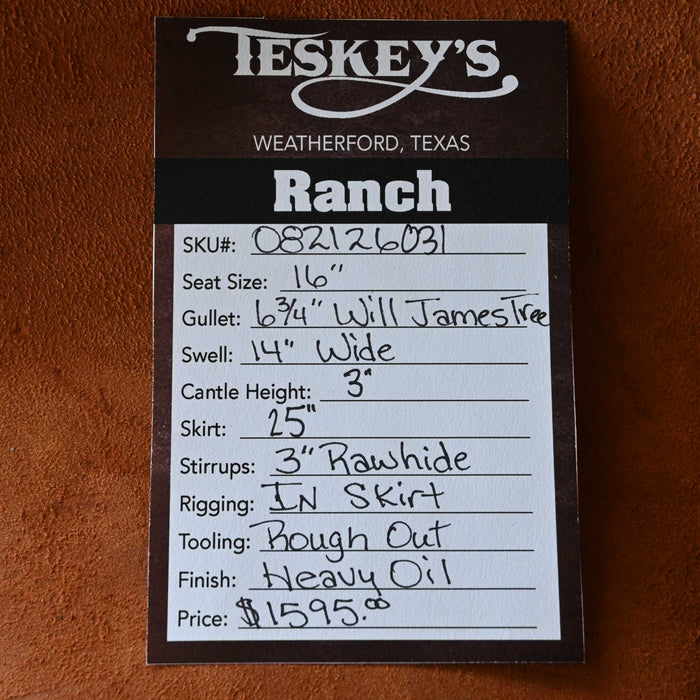 TESKEY'S
WEATHERFORD, TEXAS
Ranch
SKU#: 082126031
Seat Size: 16"
Gullet: 6 3/4" Will James Tree
Swell: 14" Wide
Cantle Height: 3"
Skirt: 25"
Stirrups: 3" Rawhide
Rigging: IN Skirt
Tooling: Rough Out
Finish: Heavy Oil
Price: $1595.00